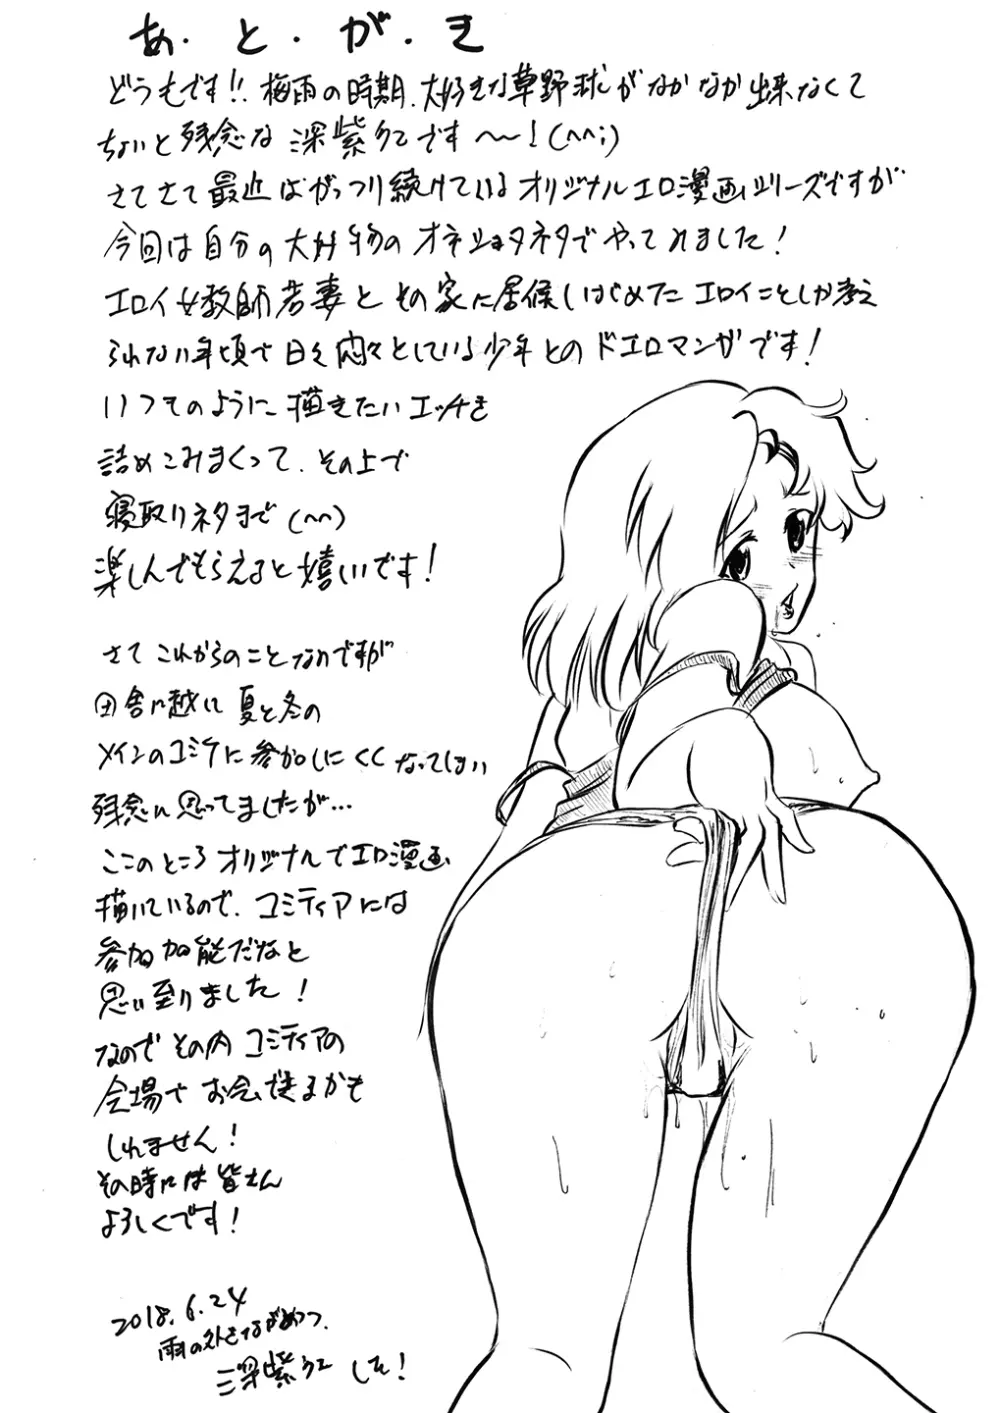 あ・と・が・き
どうもです!! 梅雨の時期、大好きな草野球がなかなか出来なくて
ちょいと残念な 深紫んこです〜!(^^;)
さてさて最近はがっつり続けているオリジナルエロ漫画シリーズですが
今回は自分の大好物のオネショタネタでやってみました!
エロイ女教師若妻とその家に居候しはじめたエロイことしか考え
られない年頃で日々悶々としている少年とのドエロマンガです!
いつものように描きたいエッチを
詰めこみまくって、その上で
寝取りネタまで(^^)
楽しんでもらえると嬉しいです!
さてこれからのことなのですが
田舎に越して夏と冬の
メインのコミケに参加しにくくなってしまい
残念に思ってましたが…
ここのところオリジナルでエロ漫画
描いているので、コミティアには
参加可能だなと
思い至りました!
なのでその内コミティアの
会場でお会いできるかも
しれません!
その時には皆さん
よろしくです!
2018.6.24
雨の外をながめつつ、
深紫